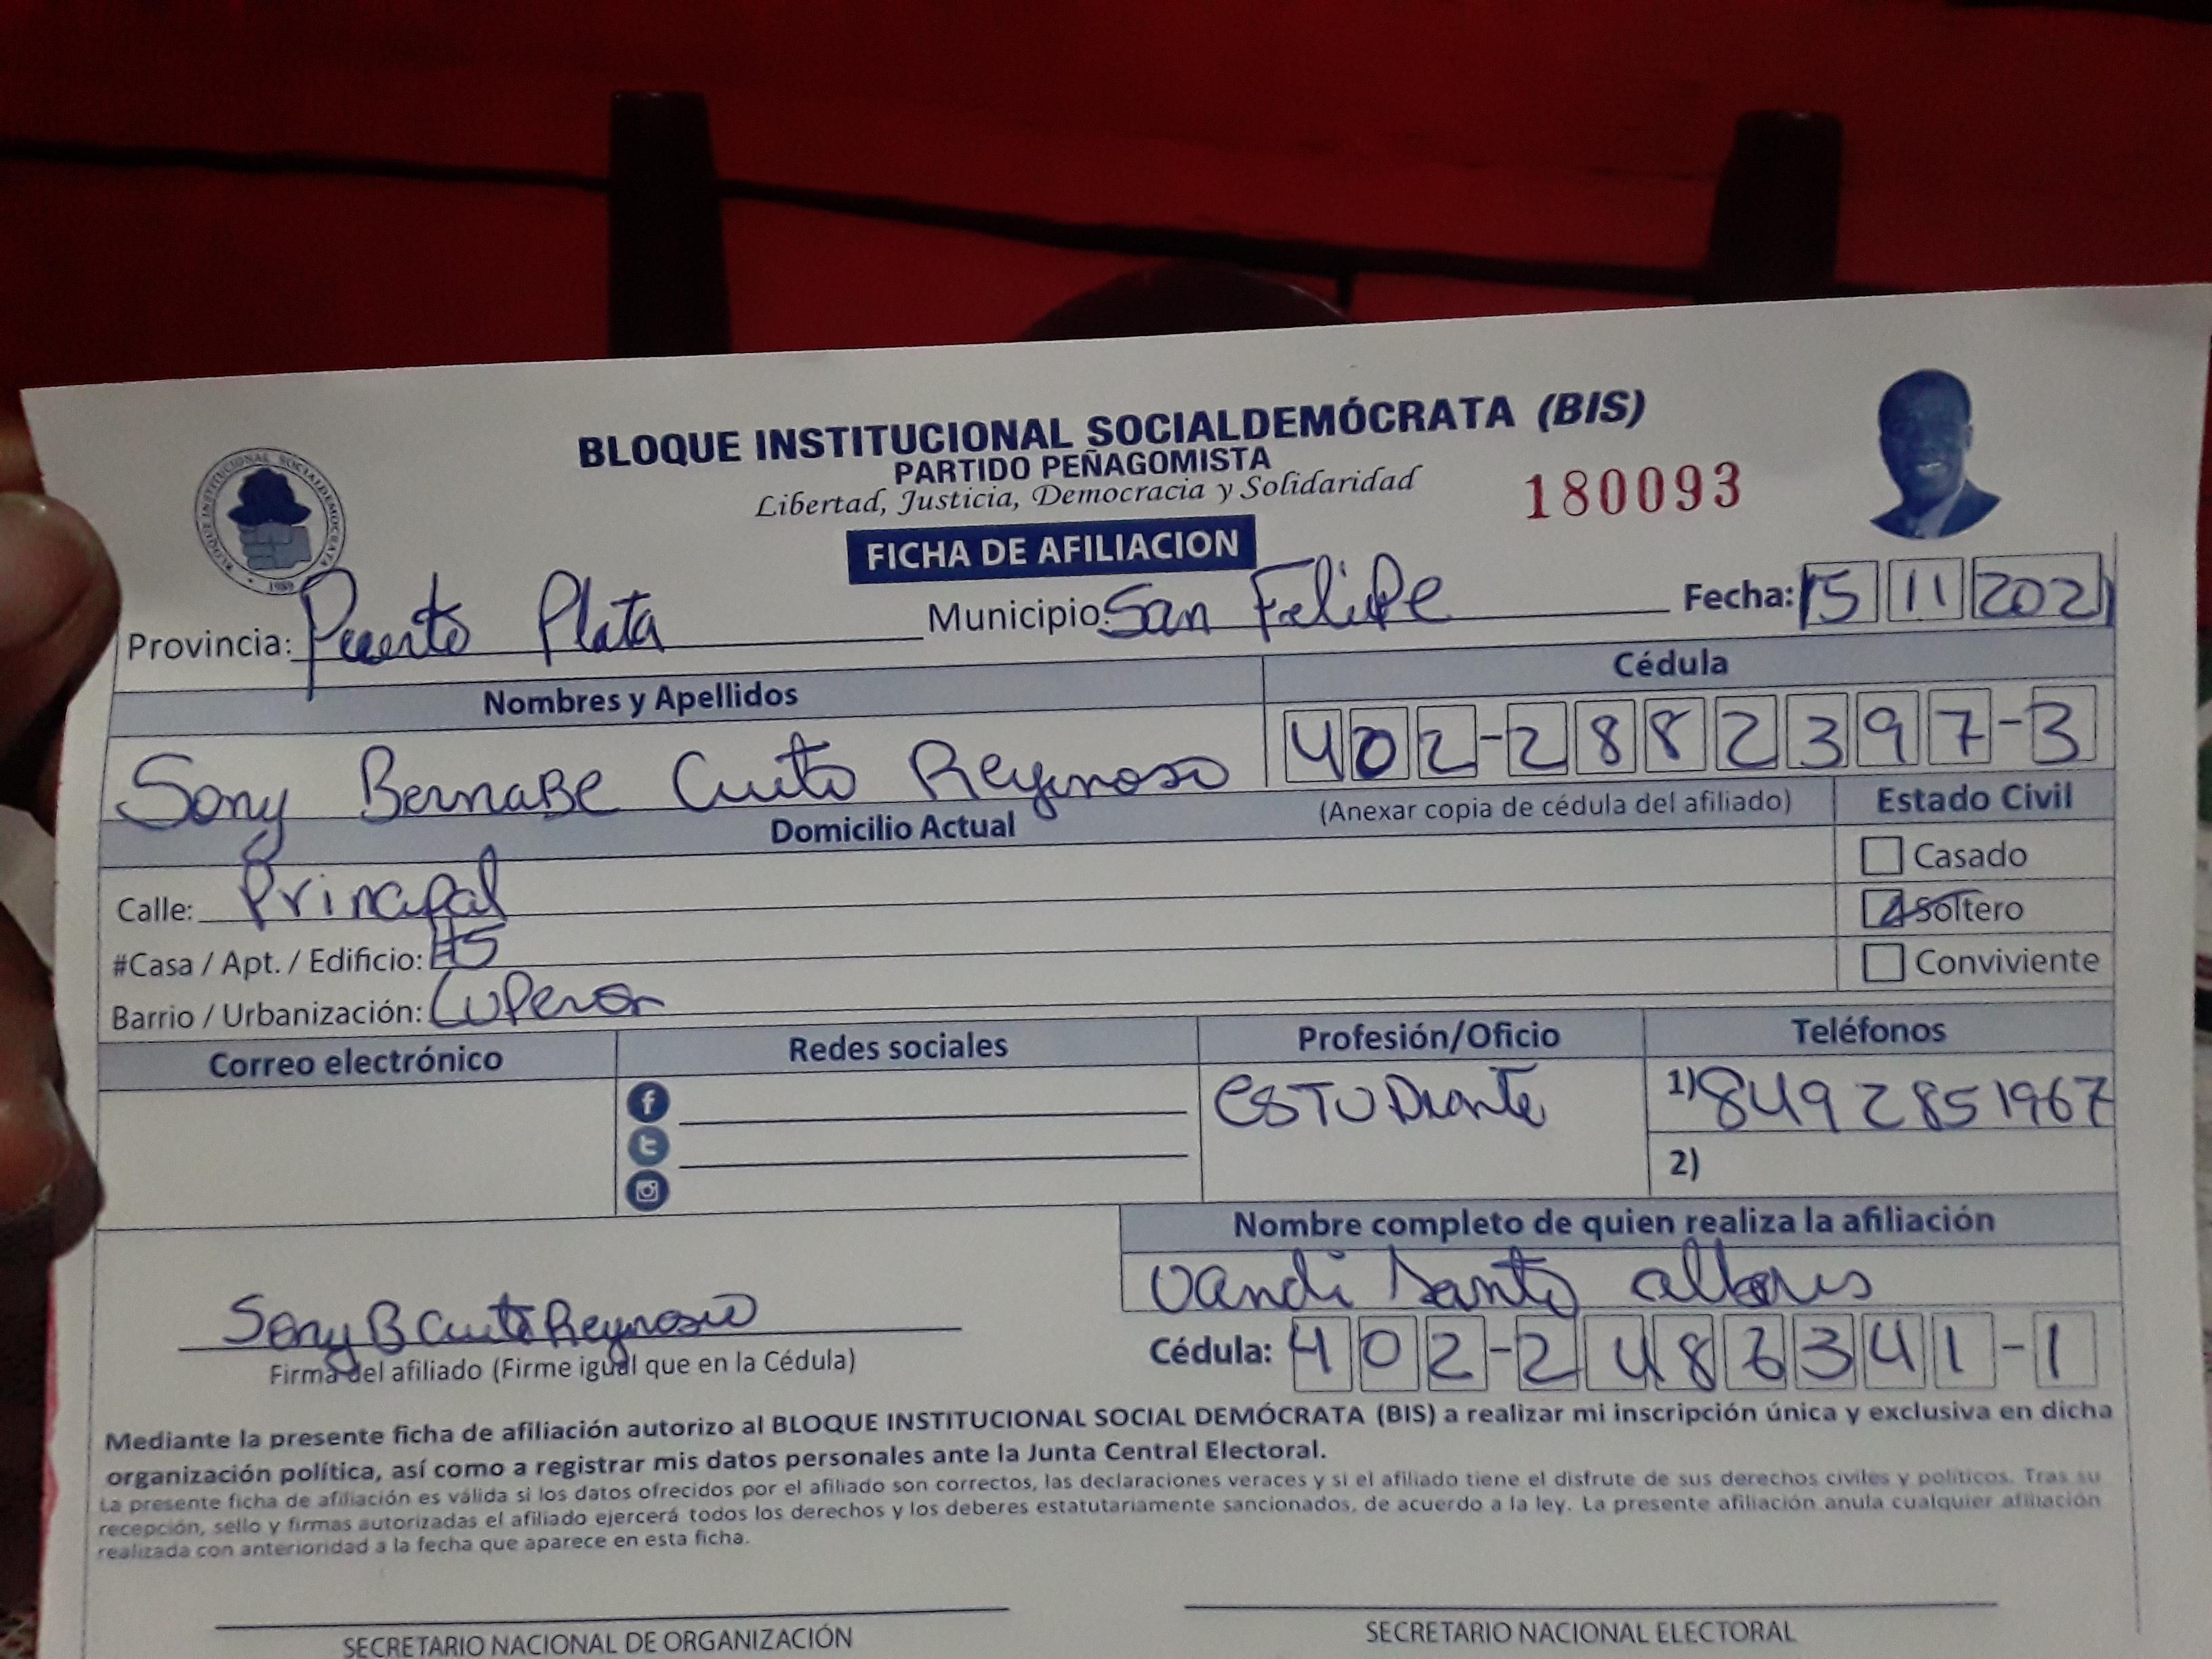 BLOQUE INSTITUCIONAL SOCIALDEMÓCRATA (BIS)
PARTIDO PEÑAGOMISTA
Libertad, Justicia, Democracia y Solidaridad
180093
BLOQUE INSTITUCIONAL SOCIALDEMOCRATA
1989
FICHA DE AFILIACION
Provincia: Puerto Plata Municipio: San Felipe Fecha: 15 11 2021
Nombres y Apellidos Cédula
Sony Bernabe Cuito Reynoso 402-2882397-3
Domicilio Actual (Anexar copia de cédula del afiliado) Estado Civil
Casado
Calle: Principal
Soltero
#Casa / Apt. / Edificio: #5
Conviviente
Barrio / Urbanización: Luperon
Correo electrónico Redes sociales Profesión/Oficio Teléfonos
f ESTUDiante 1) 849 2851967
2)
Nombre completo de quien realiza la afiliación
Vandi Santo
Sony B Cuito Reynoso
Cédula: 402-2486341-1
Firma del afiliado (Firme igual que en la Cédula)
Mediante la presente ficha de afiliación autorizo al BLOQUE INSTITUCIONAL SOCIAL DEMÓCRATA (BIS) a realizar mi inscripción única y exclusiva en dicha
organización política, así como a registrar mis datos personales ante la Junta Central Electoral.
La presente ficha de afiliación es válida si los datos ofrecidos por el afiliado son correctos, las declaraciones veraces y si el afiliado tiene el disfrute de sus derechos civiles y políticos. Tras su
recepción, sello y firmas autorizadas el afiliado ejercerá todos los derechos y los deberes estatutariamente sancionados, de acuerdo a la ley. La presente afiliación anula cualquier afiliación
realizada con anterioridad a la fecha que aparece en esta ficha.
SECRETARIO NACIONAL DE ORGANIZACIÓN SECRETARIO NACIONAL ELECTORAL